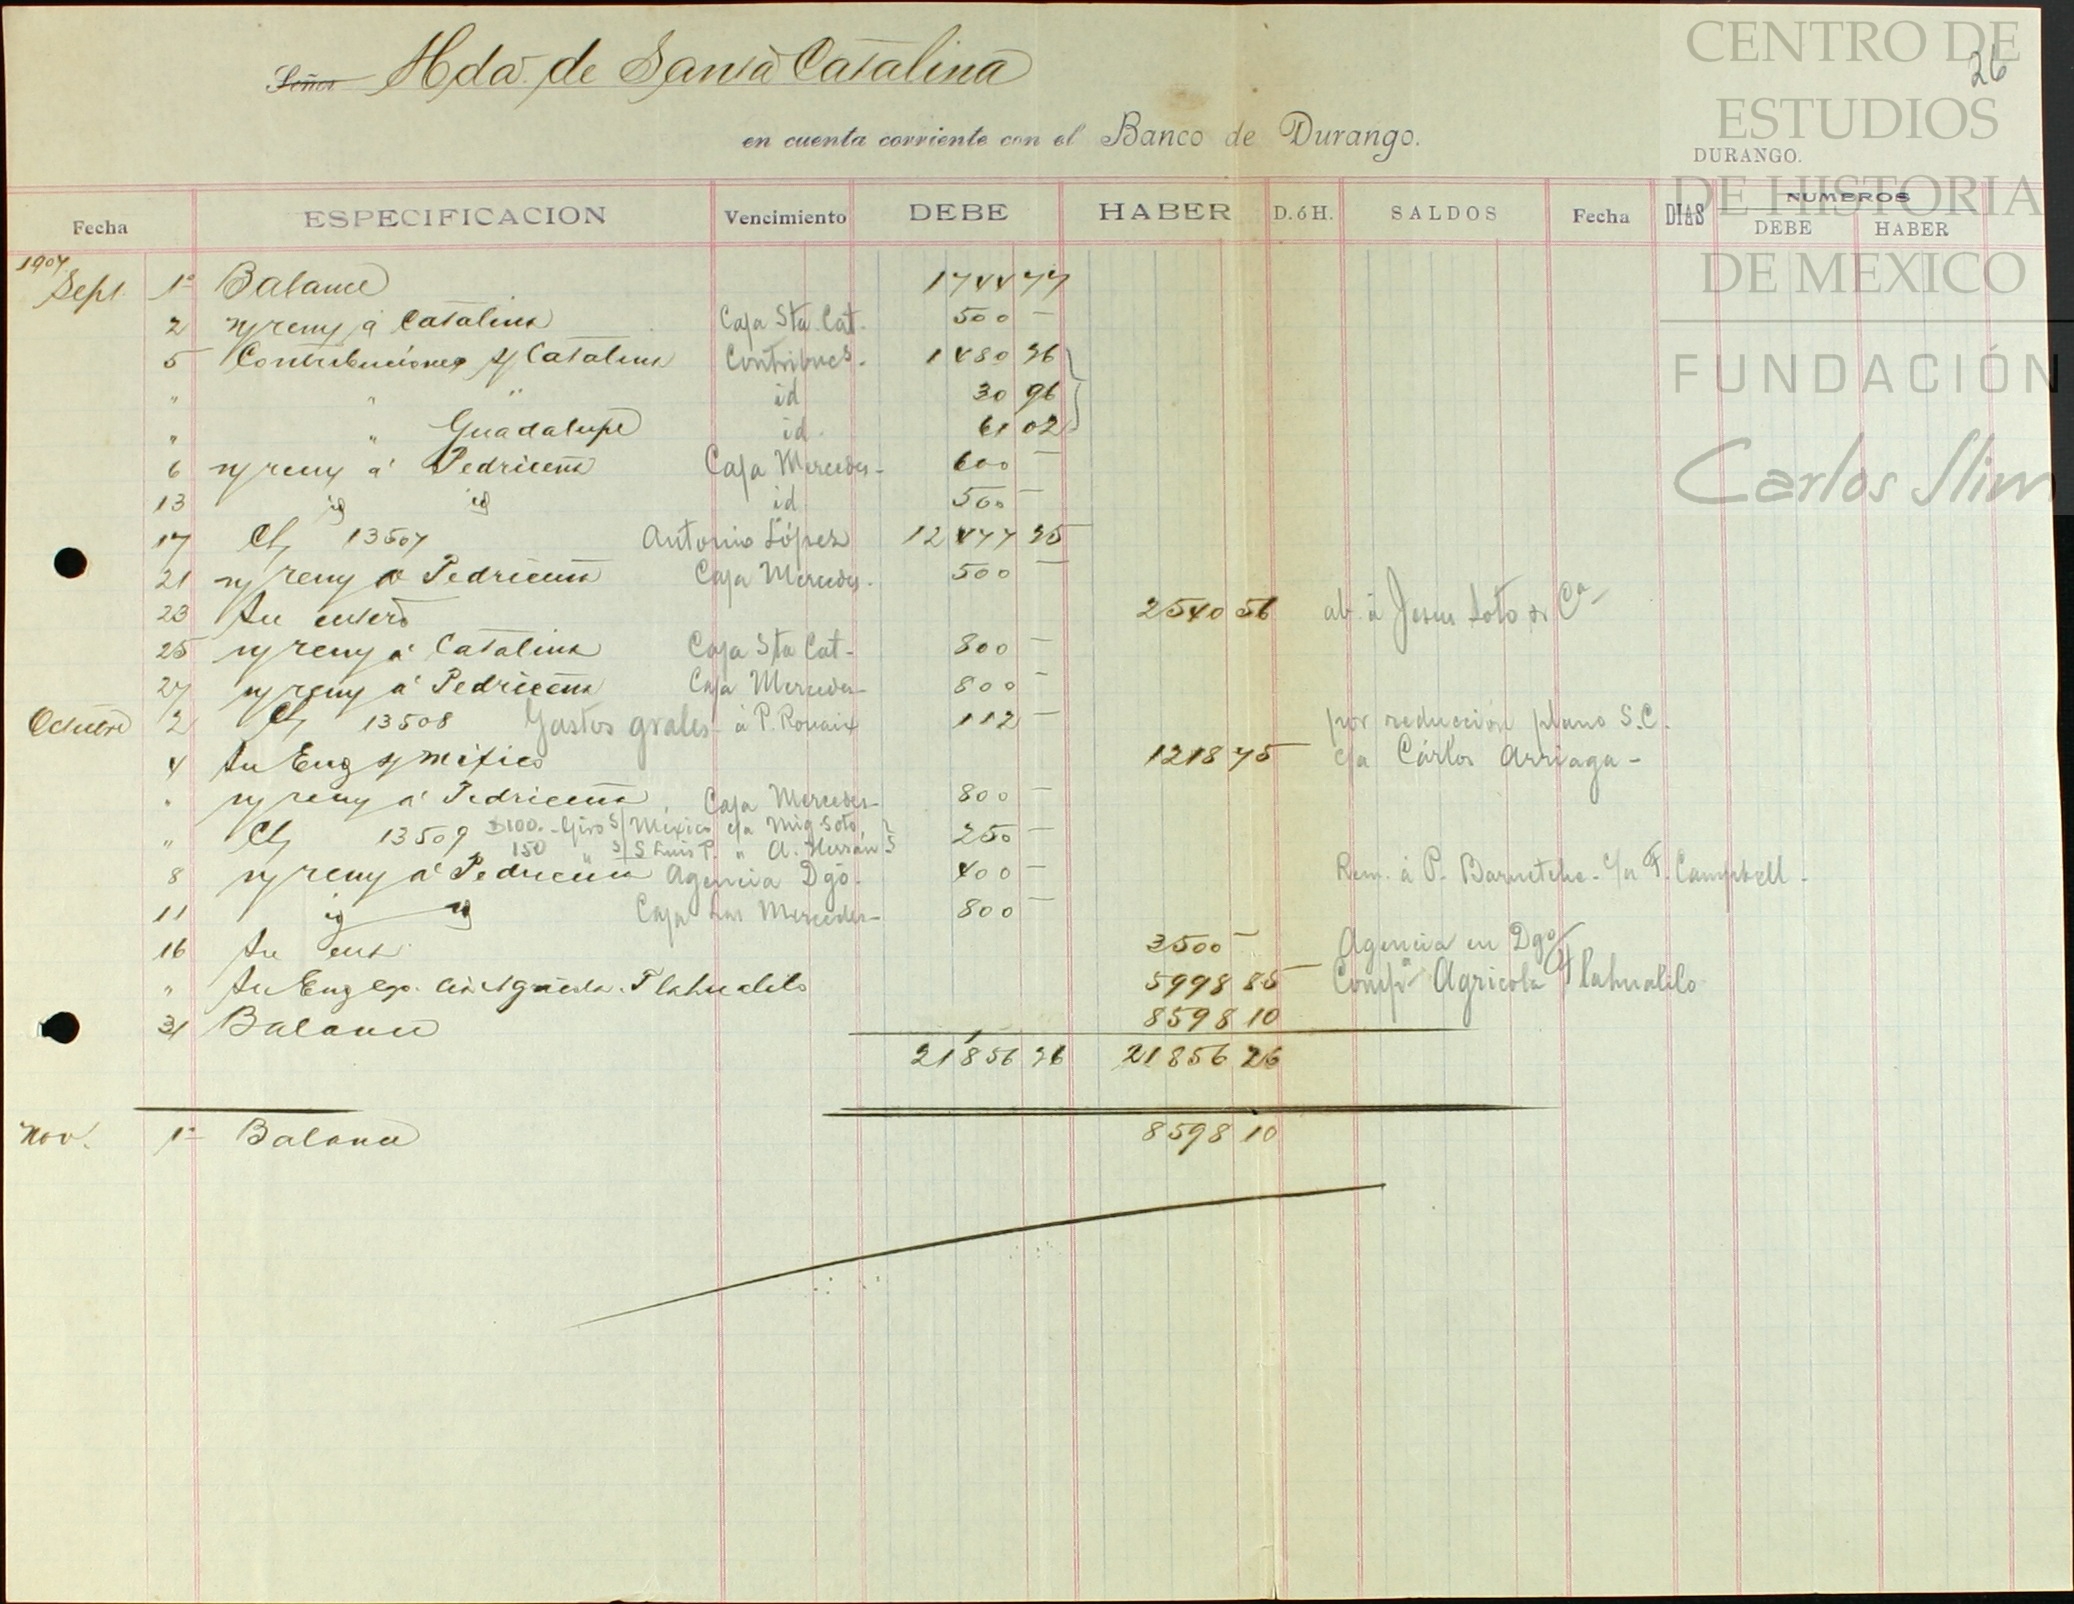 CENTRO DE
ESTUDIOS
DE HISTORIA
DE MEXICO
FUNDACIÓN
Carlos Slim
26
Señor Hda. de Santa Catalina
en cuenta corriente con el Banco de Durango.
DURANGO.
Fecha ESPECIFICACION Vencimiento DEBE HABER D. ó H. SALDOS Fecha DIAS NUMEROS
DEBE HABER
1907
Sept. 1º Balance 1744 77
2 n/ rem/ á Catalina Caja Sta. Cat. 500 —
5 Contribuciones s/ Catalina Contribucs. 1480 26
" " " id 30 96
" " Guadalupe id. 61 02
6 n/ rem/ á Pedriceña Caja Mercedes - 600 —
13 id id id 500 —
17 Ch/ 13507 Antonio López 12477 25
21 n/ rem/ á Pedriceña Caja Mercedes. 500 —
23 Su entero 2540 56 ab. á Jesus Soto & Cª
25 n/ rem/ á Catalina Caja Sta Cat - 800 —
27 n/ rem/ á Pedriceña Caja Mercedes - 800 —
Octubre 2 Ch/ 13508 Gastos grales. á P. Rouaix 112 — por reducción plano S.C.
4 Su Eng s/ Mexico 1218 75 c/a Cárlos Arriaga -
" n/ rem/ á Pedriceña, Caja Mercedes - 800 —
" Ch/ 13509 $100. - Giro S/ México c/a Mig Soto, 250 —
150 " S/ S Luis P. " A. Herrán
8 n/ rem/ á Pedriceña Agencia Dgo. 400 — Rem. á P. Barnetche - c/a F. Campbell -
11 id id Caja Las Mercedes - 800 —
16 Su ent. 3500 — Agencia en Dgo
" Su Eng Tlahualilo 5998 85 Compª Agricola Tlahualilo
31 Balance 8598 10
21856 26 21856 26
Nov. 1º Balance 8598 10